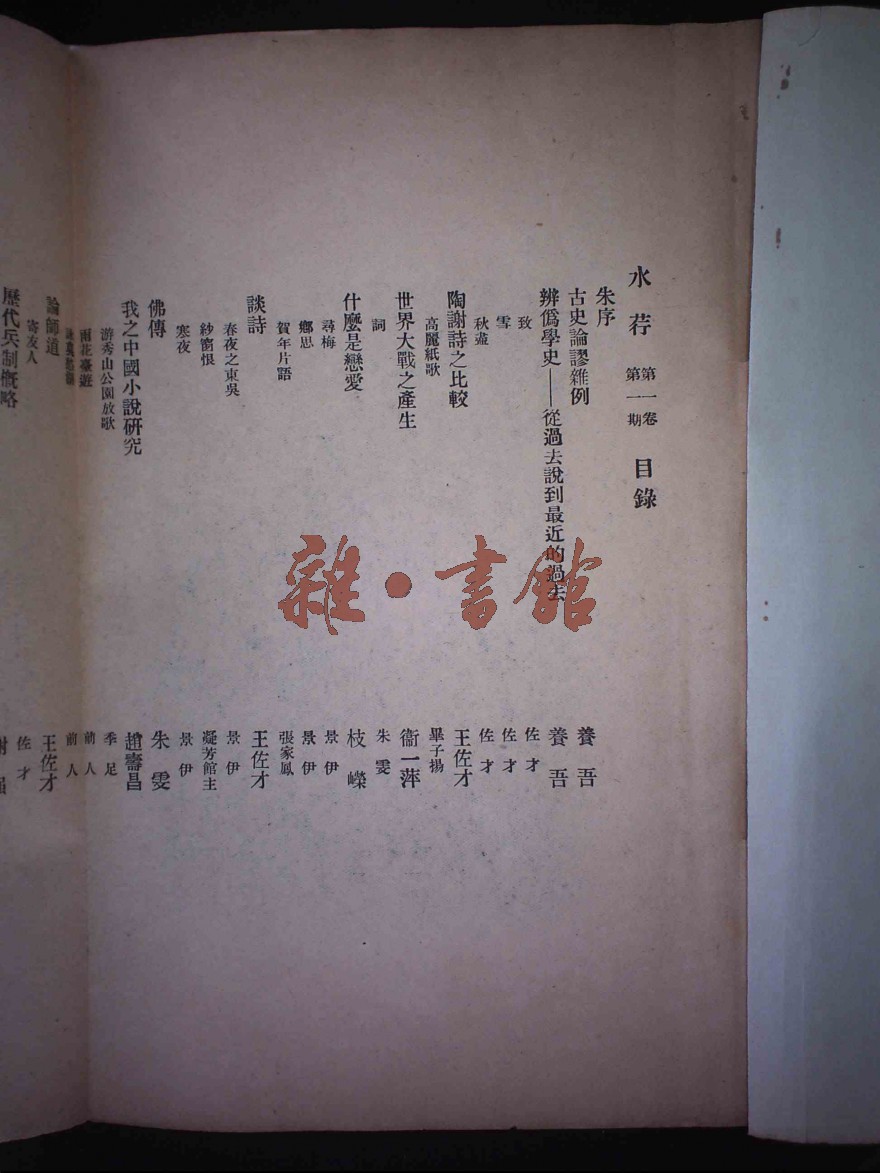 水荇 第一卷 第一期 目錄
朱序
古史論謬雜例 養吾
辨僞學史——從過去說到最近的過去 養吾
致 佐才
雪 佐才
秋蘯 佐才
陶謝詩之比較 王佐才
高麗紙歌 畢子揚
世界大戰之產生 衞一萍
詞 朱雯
什麼是戀愛 枝嶸
尋梅 景伊
鄉思 景伊
賀年片語 張家鳳
談詩 王佐才
春夜之東吳 景伊
紗窗恨 凝芳館主
寒夜 景伊
佛傳 朱雯
我之中國小說研究 趙壽昌
游秀山公園放歌 季足
雨花臺遊 前人
前人
論師道 王佐才
寄友人 佐才
歷代兵制概略
雜·書館